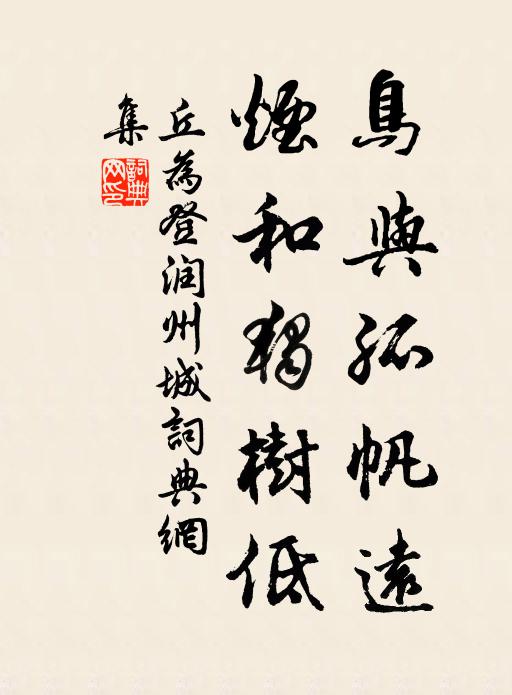 鳥與孤帆遠
煙和獨樹低
丘為登润州城詞典網
集
詞典網印